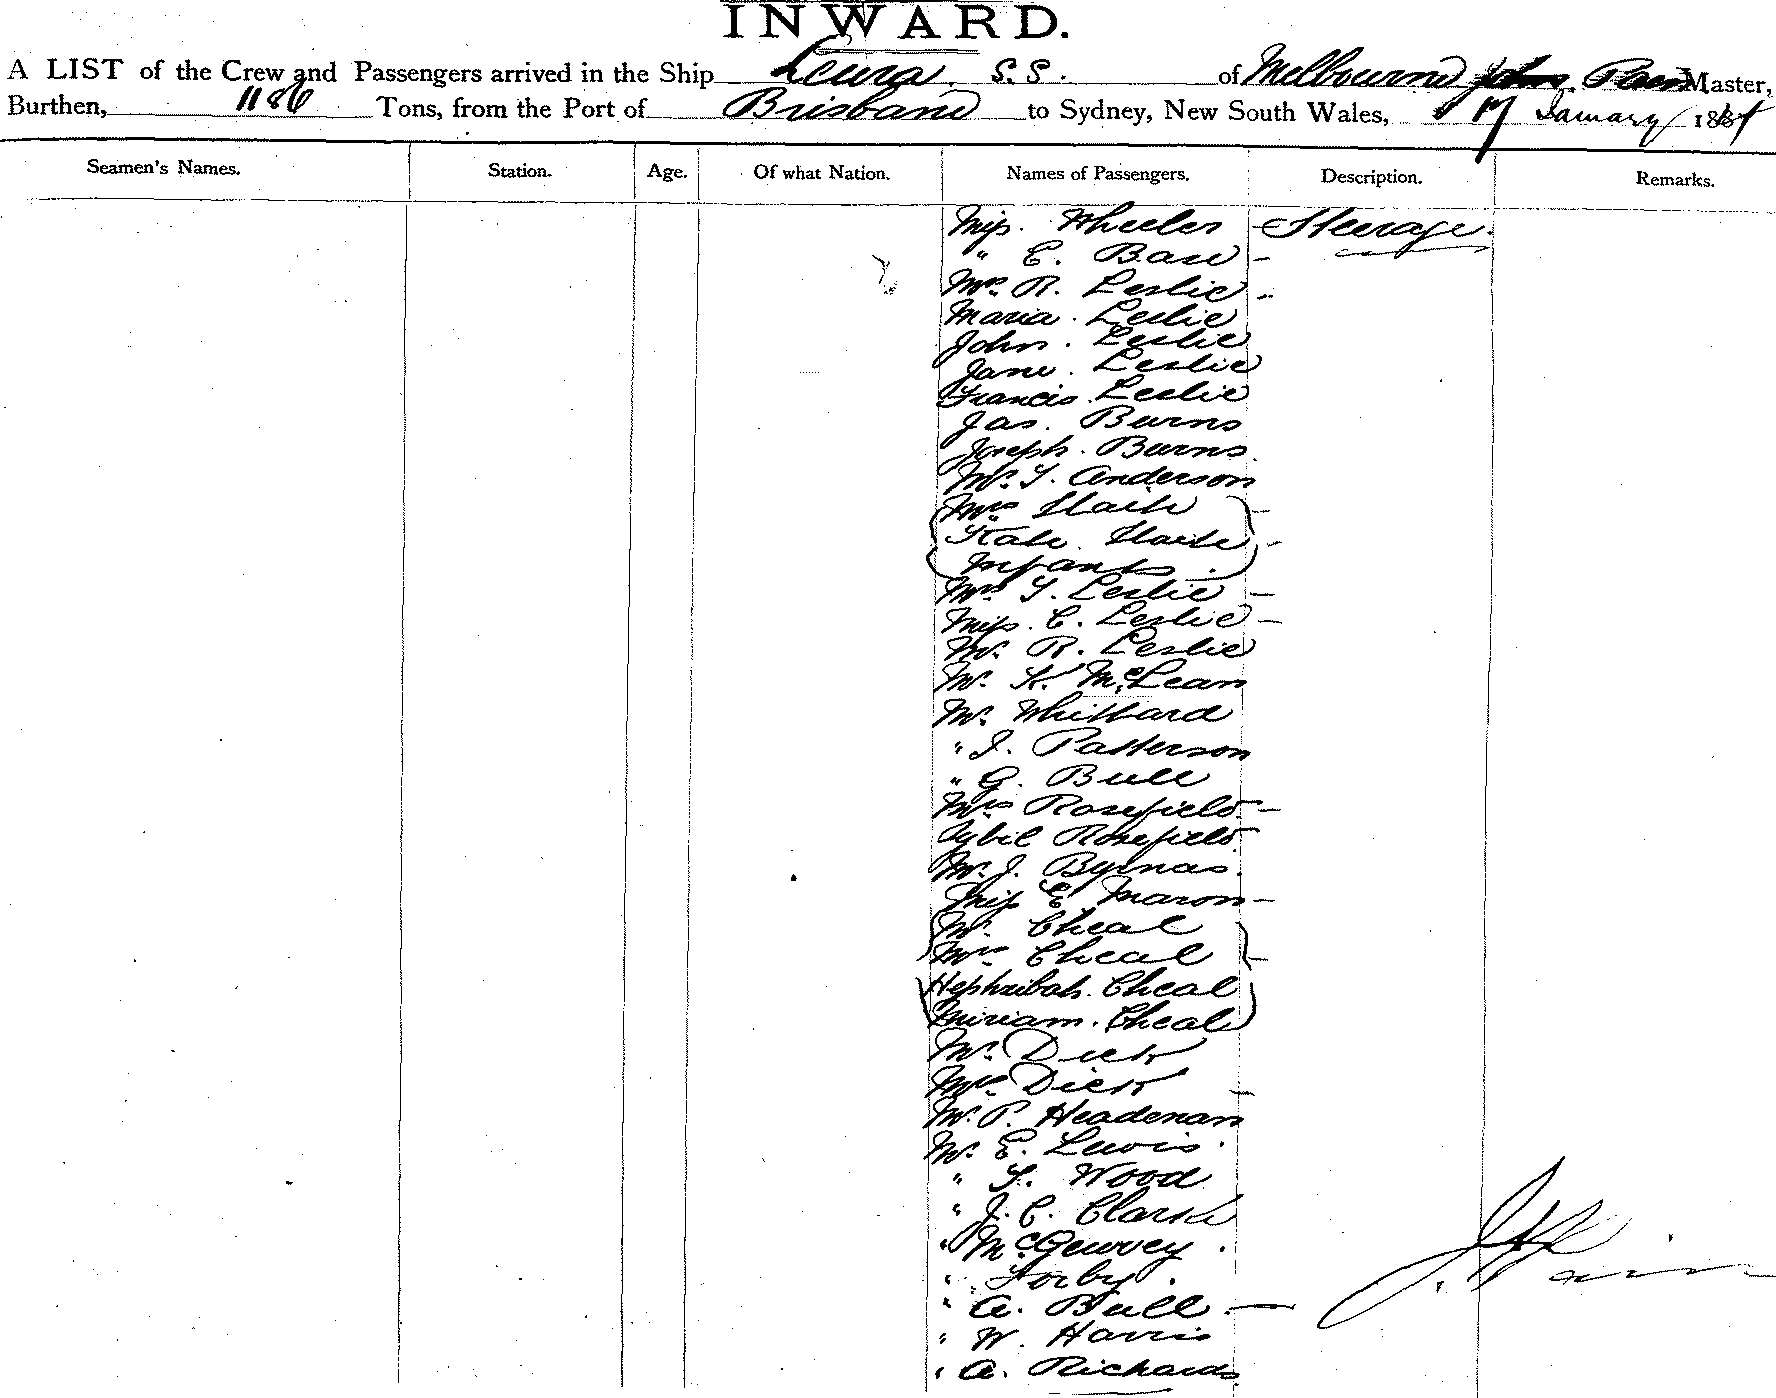 INWARD.
A LIST of the Crew and Passengers arrived in the Ship Leura S.S. of Melbourne John Pain Master,
Burthen, 1186 Tons, from the Port of Brisbane to Sydney, New South Wales, 17 January 188
Seamen's Names. Station. Age. Of what Nation. Names of Passengers. Description. Remarks.
Miss. Wheeler Steerage.
" E. Base
Mr. R. Leslie
Maria. Leslie
John. Leslie
Jane. Leslie
Francis. Leslie
Jas. Burns
Joseph. Burns
Mr. T. Anderson
Mrs
Kate
Infants.
Mrs T. Leslie
Miss. C. Leslie
Mr. R. Leslie
Mr. K. McLean
Mr. Whittard
" J. Patterson
" G. Bull
Mrs Rosefield
Sybil Rosefield
Mr. J. Byrnas.
Miss E. Maron
Mr. Cheal
Mrs Cheal
Hephzibah. Cheal
Miriam. Cheal
Mr. Dick
Mrs Dick
Mr. P. Headenan
Mr. E. Lewis.
" T. Wood
" J. C. Clarke
" McGeuvey
" Forby.
" A. Bull
" W. Harris
" A. Richards.